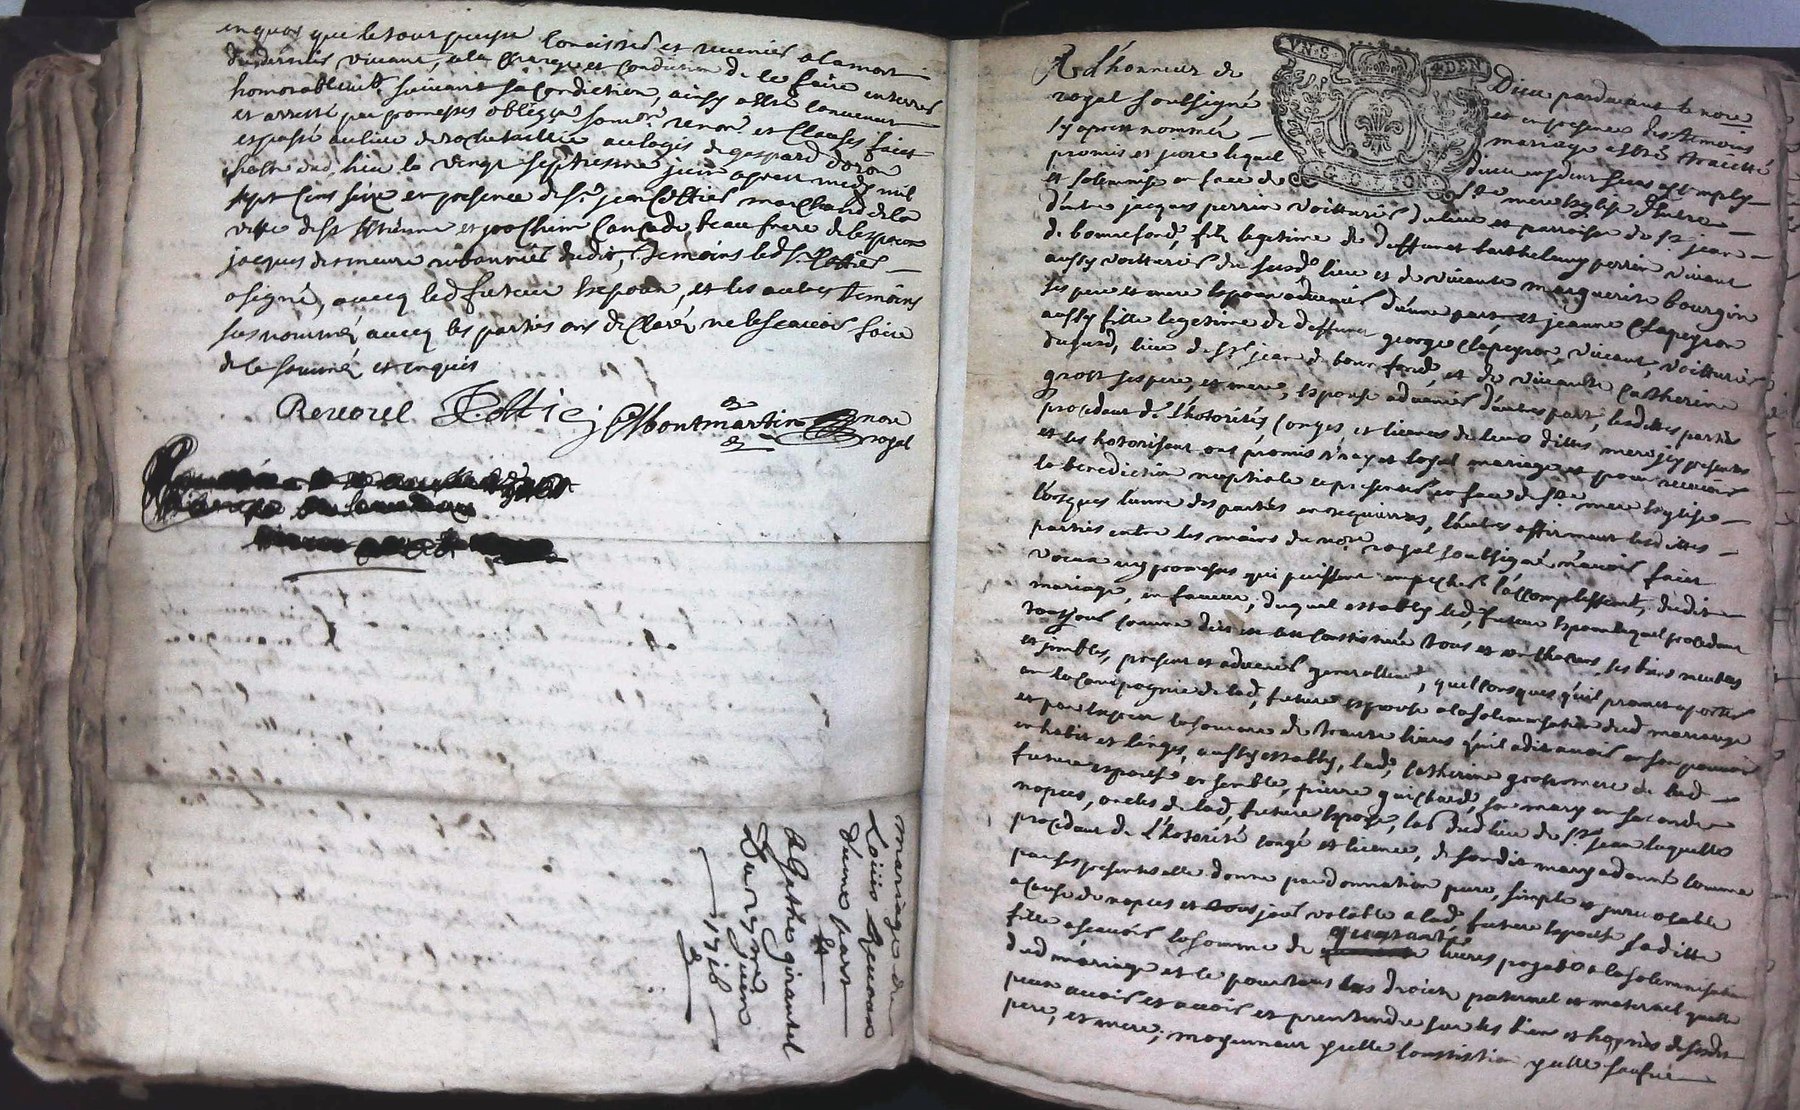 en quoy que le tout puisse concister et revenir a la mort
du dernier vivant, a la charge et condition de le faire enterrer
honorablemt. suivant sa condiction, ainsy a esté convenut
et arresté par promesses obligaon. soumon. renon. et clauses faict
et passé au lieu de rochetaillié au logis de gaspard
hoste dud. lieu le vingt septiesme juin apres midy mil
sept cens seize en presence de sr. jean Cottier marchand de la
ville de st. Estienne et joachim beau frere de lespoux
jacques demeure rubannier dudit, Temoins led. s. Cottier
a signé, avecq led futeur Espoux, et les autres temoins
sus nommés avecq les parties ont declarés ne le scavoir faire
de ce sommés et enquis
Reverel Cottier Montmartin nore
royal
mariage de
Louis
d'une part
et
agathe girantet
1716
VN.S. 4.DEN
G. D. LYON
A l'honneur de Dieu pardevant le nore
royal soubsigné et en presence des temoins
sy apres nommés mariage a esté traitté
promis et jure lequel Dieu aydant sera accomply
et solemnise en face de Ste. mere Esglise Entre
d'entre jacques perrin voitturier du lieu et parroisse de st. jean
de bonnefond, fils legitime de deffunct barthelemy perrin vivant
aussy voitturier du susd. lieu et de vivante marguerite bourgin
ses pere et mere Espoux advenir d'une part et jeanne Clapeyron
aussy fille legitime de deffunct george Clapeyron, vivant, voitturier
du susd, lieu de st. jean de bonnefond, et de vivante Catherine
grost ses pere, et mere, espouse advenir d'autre part, lesdittes parties
procedant de l'hotorités, Conges et licences de leurs dittes meres jcy presentes
et les hotorisant ont promis vray et loyal mariage et pour recevoir
la benediction nuptiale ce presenter en face de Ste. mere Esglise
lorsque l'unne des parties en requierra, l'autre affirmant lesdittes
parties entre les mains du nore. royal soubsigné n'avoir faict
voeux ny promesses qui puissent empecher l'accomplissemt, dudit
mariage, en faveur, duquel estably led. futeur Espoux lequel procedant
tousjours comme dit est cest constitué tous et un chacuns ses biens meubles
et jmmbles, present et advenir generallemt, quelconques quil promet aporter
en la compagnie de lad. future Espouse a la solemnisation dud mariage
et par Expres la somme de trante livres quil a dit avoir en son pouvoir
en habit et linges, aussy estably, lad. Catherine grost mere de lad
future espouse ensemble, pierre guichard, son mary en secondes
nopces, oncles de lad. future Espouse, tous dud lieu de st. jean laquelle
procedant de l'hotorité congé et licence, de sondit mary a donné comme
par ses presentes elle donne par donnation pure, simple et jrrevocable
a cause de nopces et tousjours valable a lad. future Espouse sa ditte
fille a scavoir la somme de quarante livres payable a la solemnisation
dud mariage et le pour tous les droicts paternel et maternel quelle
peux avoir et avoir et prentendre sur les biens et hoyries de sesdit
pere, et mere, moyennant quelle constistion quelle